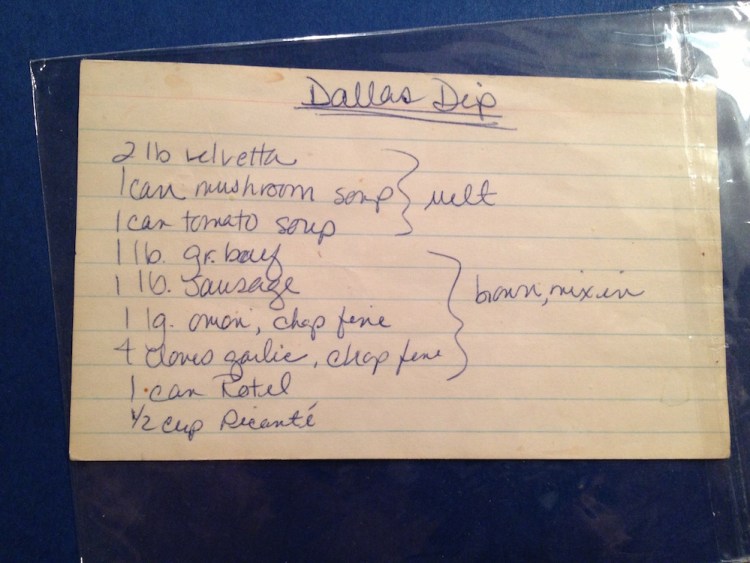 Dallas Dip
2 lb velvetta
1 can mushroom soup
melt
1 can tomato soup
1 lb. gr. beef
1 lb. sausage
brown, mix in
1 lg. onion, chop fine
4 cloves garlic, chop fine
1 can Rotel
1/2 cup Picanté